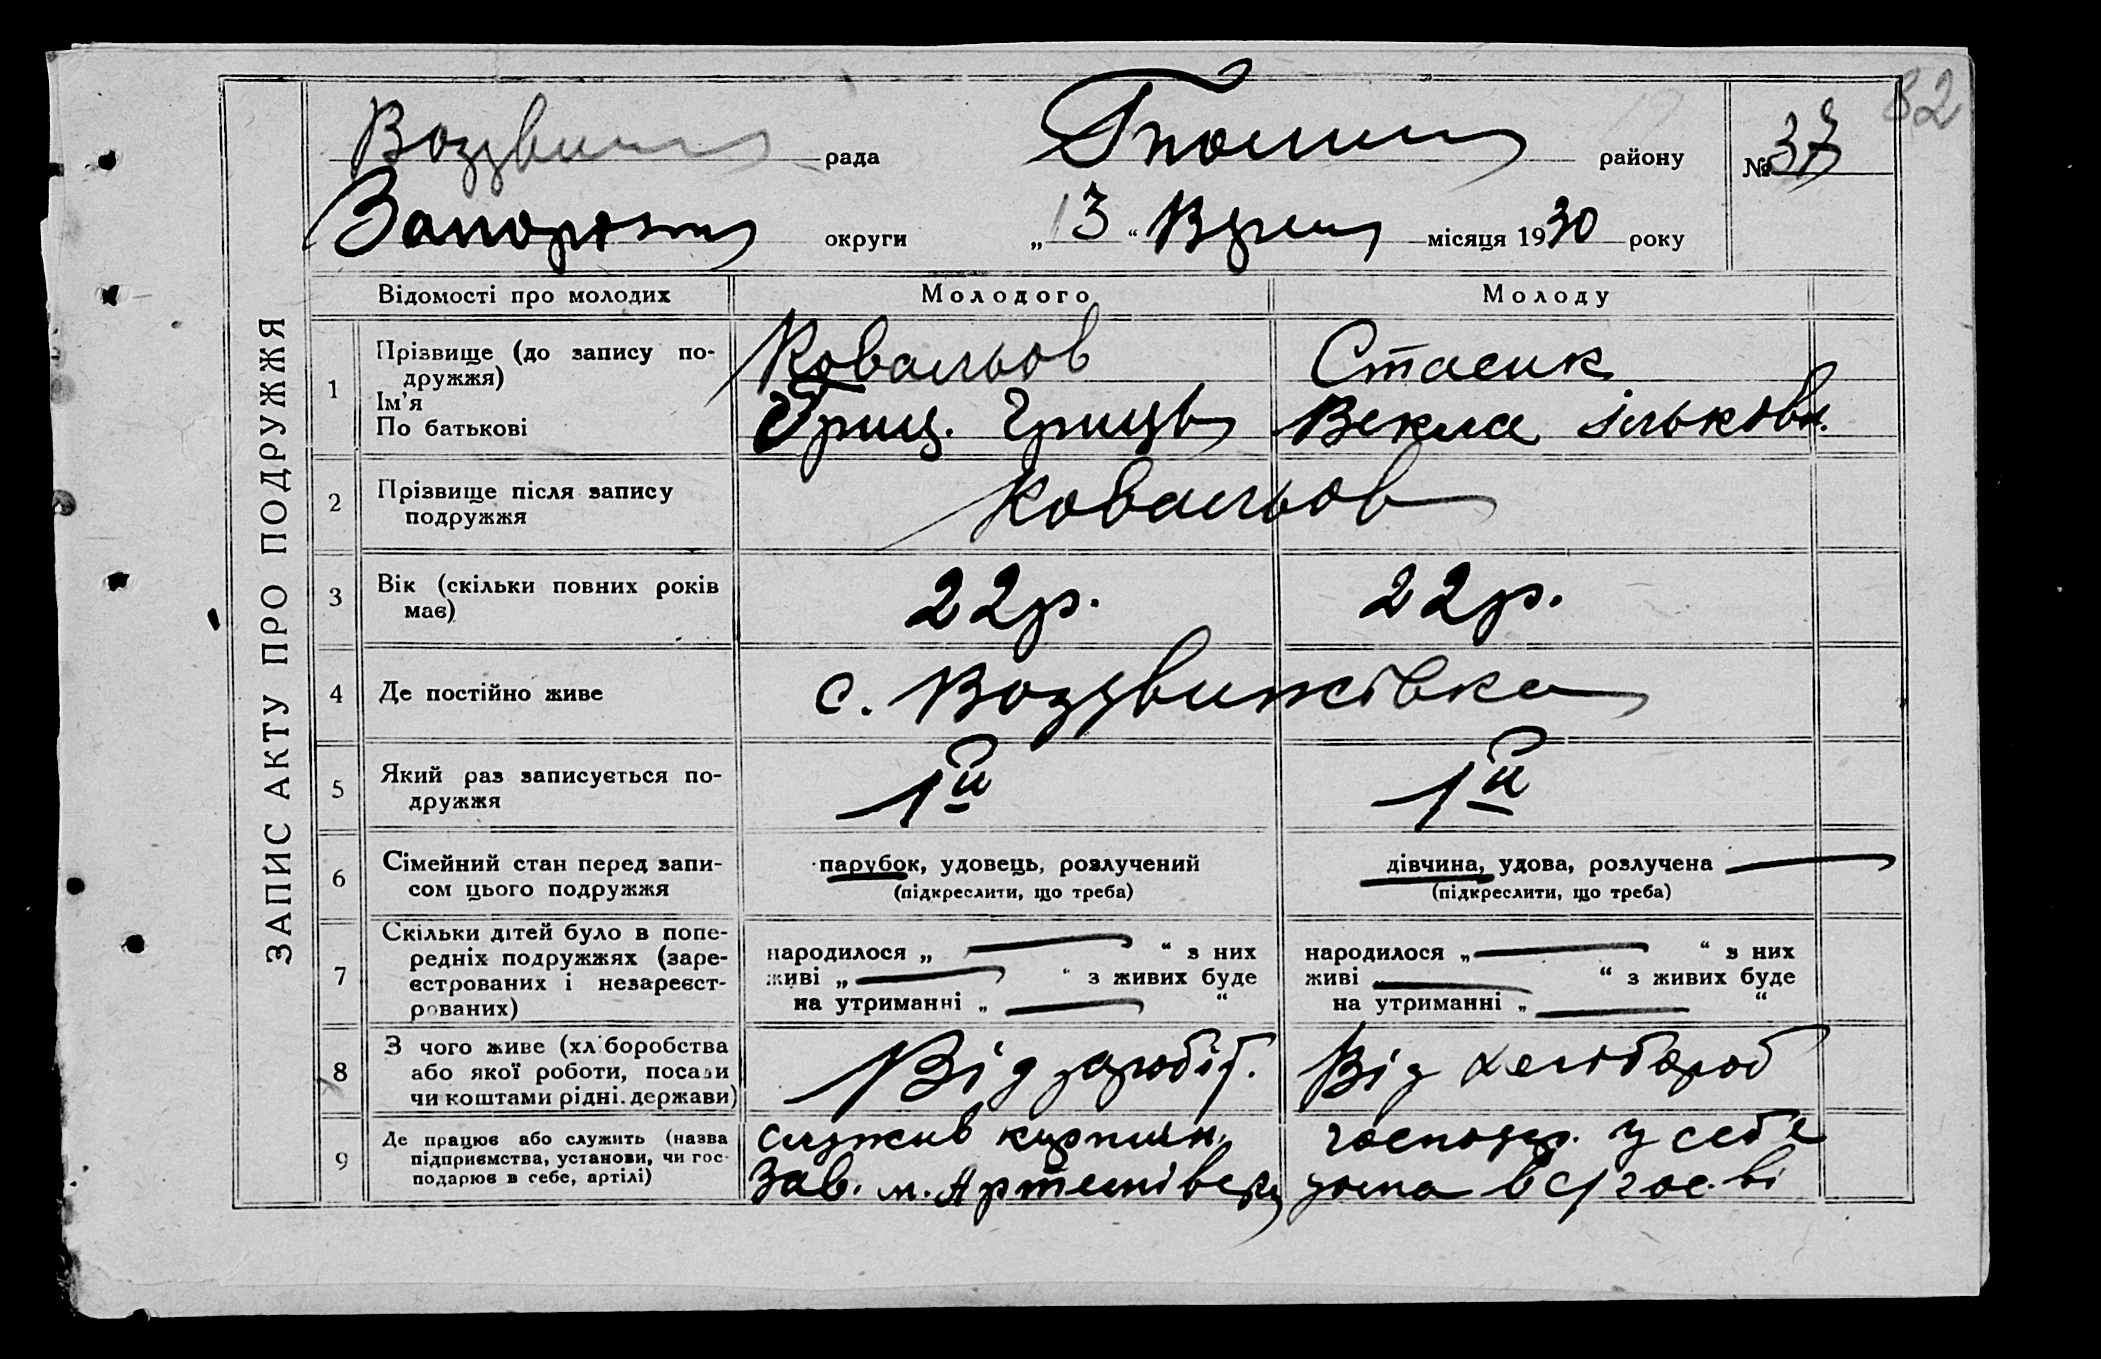 82
Воздвиж рада
району
№ 37
Запорізьк округи
„13“ місяця 1930 року
ЗАПИС АКТУ ПРО ПОДРУЖЖЯ
Відомості про молодих
Молодого
Молоду
1
Прізвище (до запису по-
дружжя)
Ім'я
По батькові
Ковальов
Гриц. Гриць
Стасик
Векла Ількова.
2
Прізвище після запису
подружжя
Ковальов
3
Вік (скільки повних років
має)
22 р.
22 р.
4
Де постійно живе
с. Воздвижівка
5
Який раз записується по-
дружжя
1й
1й
6
Сімейний стан перед запи-
сом цього подружжя
парубок, удовець, розлучений
(підкреслити, що треба)
дівчина, удова, розлучена
(підкреслити, що треба)
7
Скільки дітей було в попе-
редніх подружжях (заре-
єстрованих і незареєст-
рованих)
народилося „ — “ з них
живі „ — “ з живих буде
на утриманні „ — “
народилося „ — “ з них
живі — “ з живих буде
на утриманні „ — “
8
З чого живе (хліборобства
або якої роботи, посади
чи коштами рідні. держави)
Від заробіт.
Від хлібороб
9
Де працює або служить (назва
підприємства, установи, чи гос-
подарює в себе, артілі)
служив кирпичн.
зав. м. Артемівську
господар. у себе
дома в с/гос-ві